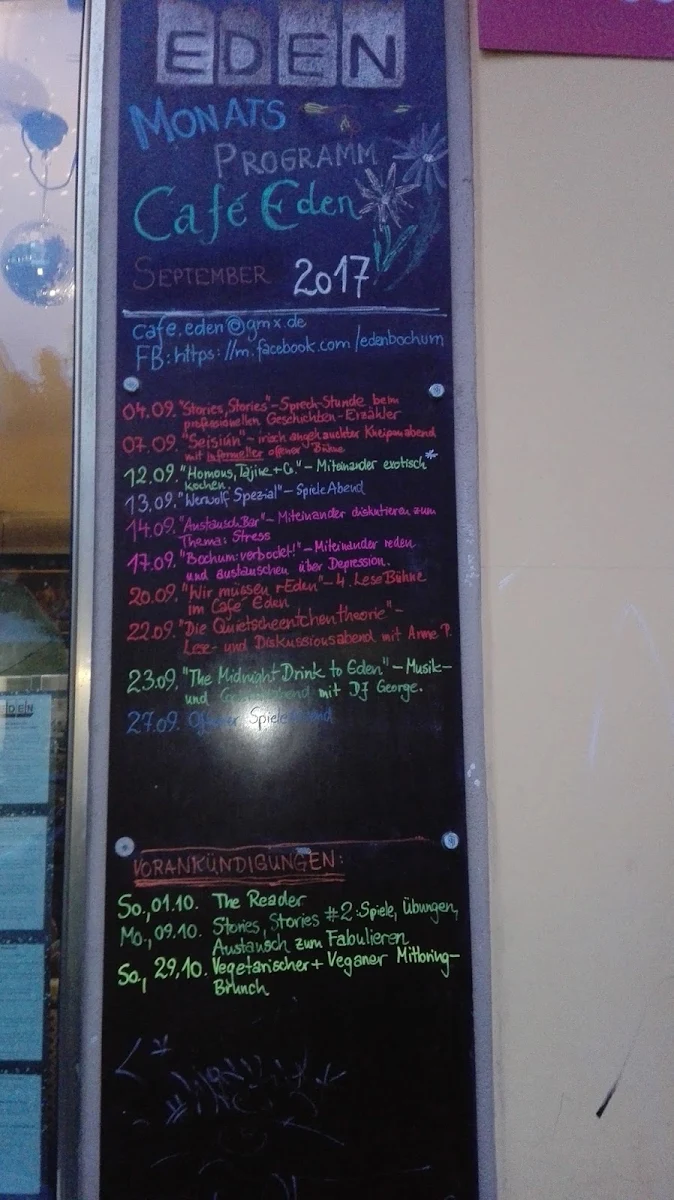 EDEN
MONATS
PROGRAMM
Café Eden
SEPTEMBER 2017
cafe.eden@gmx.de
FB: https://m.facebook.com/edenbochum
04.09. "Stories, Stories" - Sprech-Stunde beim
professionellen Geschichten-Erzähler
07.09. "Seisiún" - irisch angehauchter Kneipenabend
mit informeller offener Bühne
12.09. "Homous, Tajine + Co." - Miteinander exotisch
kochen.
13.09. "Werwolf Spezial" - SpieleAbend
14.09. "AustauschBar" - Miteinander diskutieren zum
Thema: Stress
17.09. "Bochum: verbockt!" - Miteinander reden
und austauschen über Depression.
20.09. "Wir müssen rEden" - 4. LeseBühne
im Café Eden
22.09. "Die Quietscheentchentheorie" -
Lese- und Diskussionsabend mit Anne P.
23.09. "The Midnight-Drink to Eden" - Musik-
und mit DJ George.
27.09. Offener Spieleabend
VORANKÜNDIGUNGEN:
So., 01.10. The Reader
Mo., 09.10. Stories, Stories #2: Spiele, Übungen,
Austausch zum Fabulieren
So, 29.10. Vegetarischer + Veganer Mitbring-
Brunch
EDEN